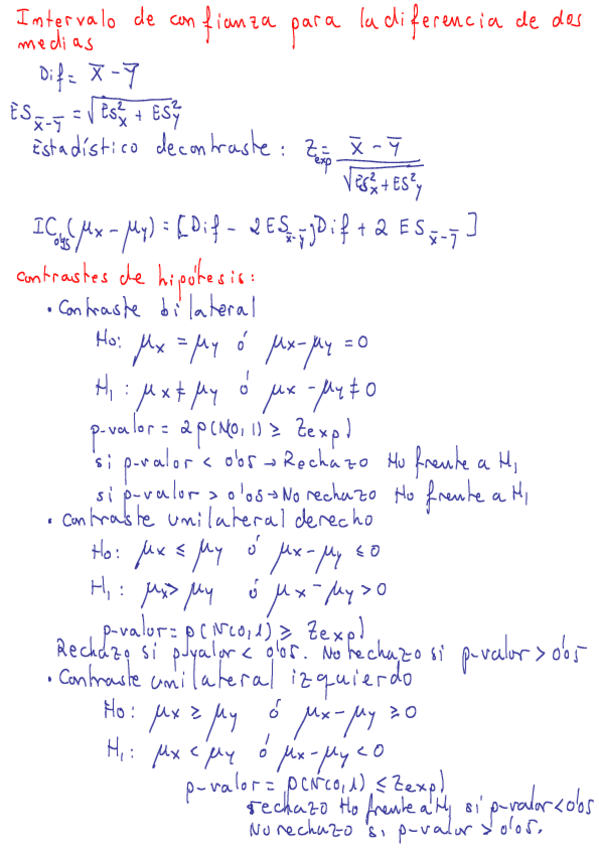 Intervalo de confianza para la diferencia de dos
medias
Dif = X̄ - Ȳ
ES_X̄-Ȳ = √(ES²x + ES²y)
Estadístico de contraste : Zexp = (X̄ - Ȳ) / √(ES²x + ES²y)
IC0'95(μx - μy) = [Dif - 2 ES_X̄-Ȳ, Dif + 2 ES_X̄-Ȳ]
Contrastes de hipótesis:
• Contraste bilateral
Ho: μx = μy ó μx - μy = 0
H1 : μx ≠ μy ó μx - μy ≠ 0
p-valor = 2 p(N(0,1) ≥ Zexp)
si p-valor < 0'05 → Rechazo Ho frente a H1
si p-valor > 0'05 → No rechazo Ho frente a H1
• Contraste unilateral derecho
Ho: μx ≤ μy ó μx - μy ≤ 0
H1 : μx > μy ó μx - μy > 0
p-valor = p(N(0,1) ≥ Zexp)
Rechazo si p-valor < 0'05. No rechazo si p-valor > 0'05
• Contraste unilateral izquierdo
Ho: μx ≥ μy ó μx - μy ≥ 0
H1 : μx < μy ó μx - μy < 0
p-valor = p(N(0,1) ≤ Zexp)
rechazo Ho frente a H1 si p-valor < 0'05
No rechazo si p-valor > 0'05.